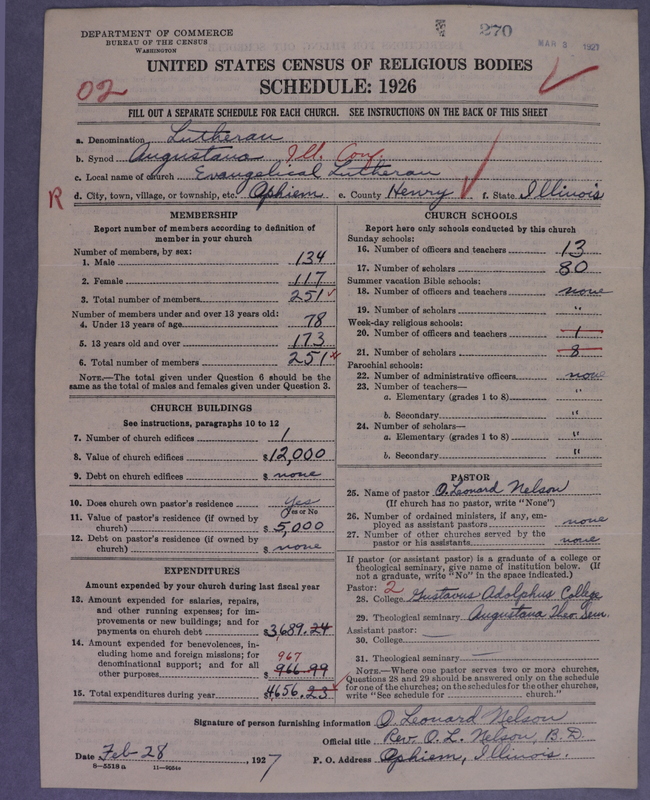 DEPARTMENT OF COMMERCE
BUREAU OF THE CENSUS
WASHINGTON
270
MAR 8 1927
UNITED STATES CENSUS OF RELIGIOUS BODIES
SCHEDULE: 1926
02
FILL OUT A SEPARATE SCHEDULE FOR EACH CHURCH. SEE INSTRUCTIONS ON THE BACK OF THIS SHEET
a. Denomination Lutheran
b. Synod Augustana Ill. Con.
c. Local name of church Evangelical Lutheran
R d. City, town, village, or township, etc. Ophiem e. County Henry f. State Illinois
MEMBERSHIP
Report number of members according to definition of
member in your church
Number of members, by sex:
1. Male 134
2. Female 117
3. Total number of members 251
Number of members under and over 13 years old:
4. Under 13 years of age 78
5. 13 years old and over 173
6. Total number of members 251
NOTE.—The total given under Question 6 should be the
same as the total of males and females given under Question 3.
CHURCH BUILDINGS
See instructions, paragraphs 10 to 12
7. Number of church edifices 1
8. Value of church edifices $12,000
9. Debt on church edifices $ none
10. Does church own pastor's residence Yes
Yes or No
11. Value of pastor's residence (if owned by
church) $5,000
12. Debt on pastor's residence (if owned by
church) $ none
EXPENDITURES
Amount expended by your church during last fiscal year
13. Amount expended for salaries, repairs,
and other running expenses; for im-
provements or new buildings; and for
payments on church debt $3,689.24
14. Amount expended for benevolences, in-
cluding home and foreign missions; for
denominational support; and for all 967
other purposes $ 966.99
15. Total expenditures during year $4656.23
CHURCH SCHOOLS
Report here only schools conducted by this church
Sunday schools:
16. Number of officers and teachers 13
17. Number of scholars 80
Summer vacation Bible schools:
18. Number of officers and teachers none
19. Number of scholars
Week-day religious schools:
20. Number of officers and teachers 1
21. Number of scholars 8
Parochial schools:
22. Number of administrative officers none
23. Number of teachers—
a. Elementary (grades 1 to 8) "
b. Secondary "
24. Number of scholars—
a. Elementary (grades 1 to 8) "
b. Secondary "
PASTOR
25. Name of pastor O. Leonard Nelson
(If church has no pastor, write "None")
26. Number of ordained ministers, if any, em-
ployed as assistant pastors none
27. Number of other churches served by the
pastor or his assistants none
If pastor (or assistant pastor) is a graduate of a college or
theological seminary, give name of institution below. (If
not a graduate, write "No" in the space indicated.)
Pastor: 2
28. College Gustavus Adolphus College
29. Theological seminary Augustana Theo. Sem.
Assistant pastor:
30. College —
31. Theological seminary —
NOTE.—Where one pastor serves two or more churches,
Questions 28 and 29 should be answered only on the schedule
for one of the churches; on the schedules for the other churches,
write "See schedule for church."
Signature of person furnishing information O. Leonard Nelson
Official title Rev. O. L. Nelson, B.D.
Date Feb-28, 1927 P. O. Address Ophiem, Illinois.